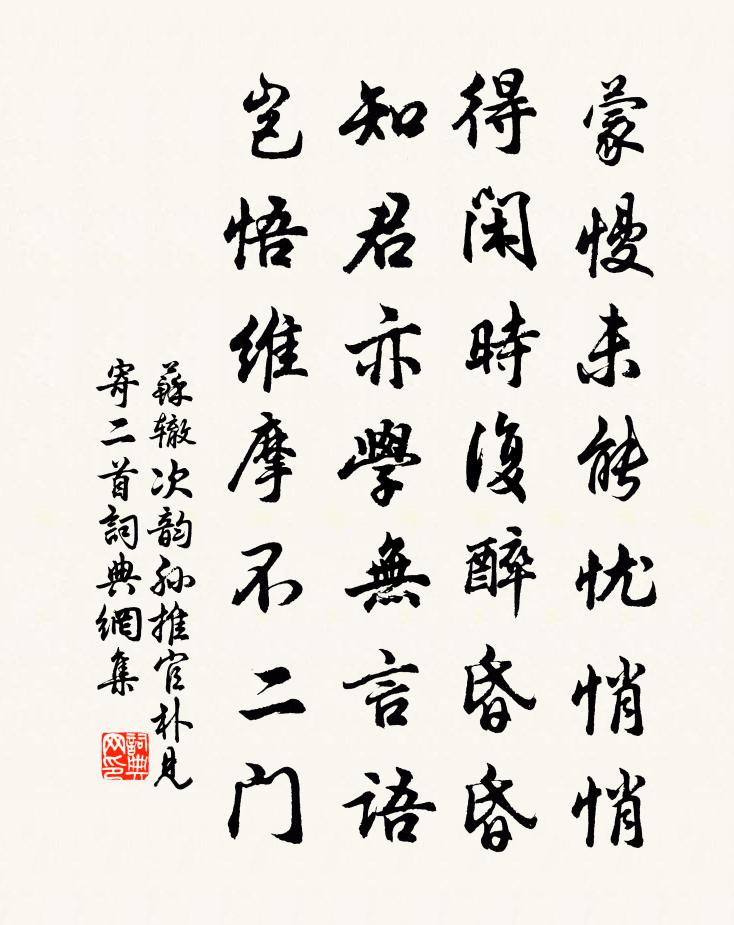 蒙慢未能忧悄悄
得闲時復醉昏昏
知君亦學無言語
岂悟維摩不二门
蘇辙次韵孙推官朴见
寄二首詞典網集
詞典网印